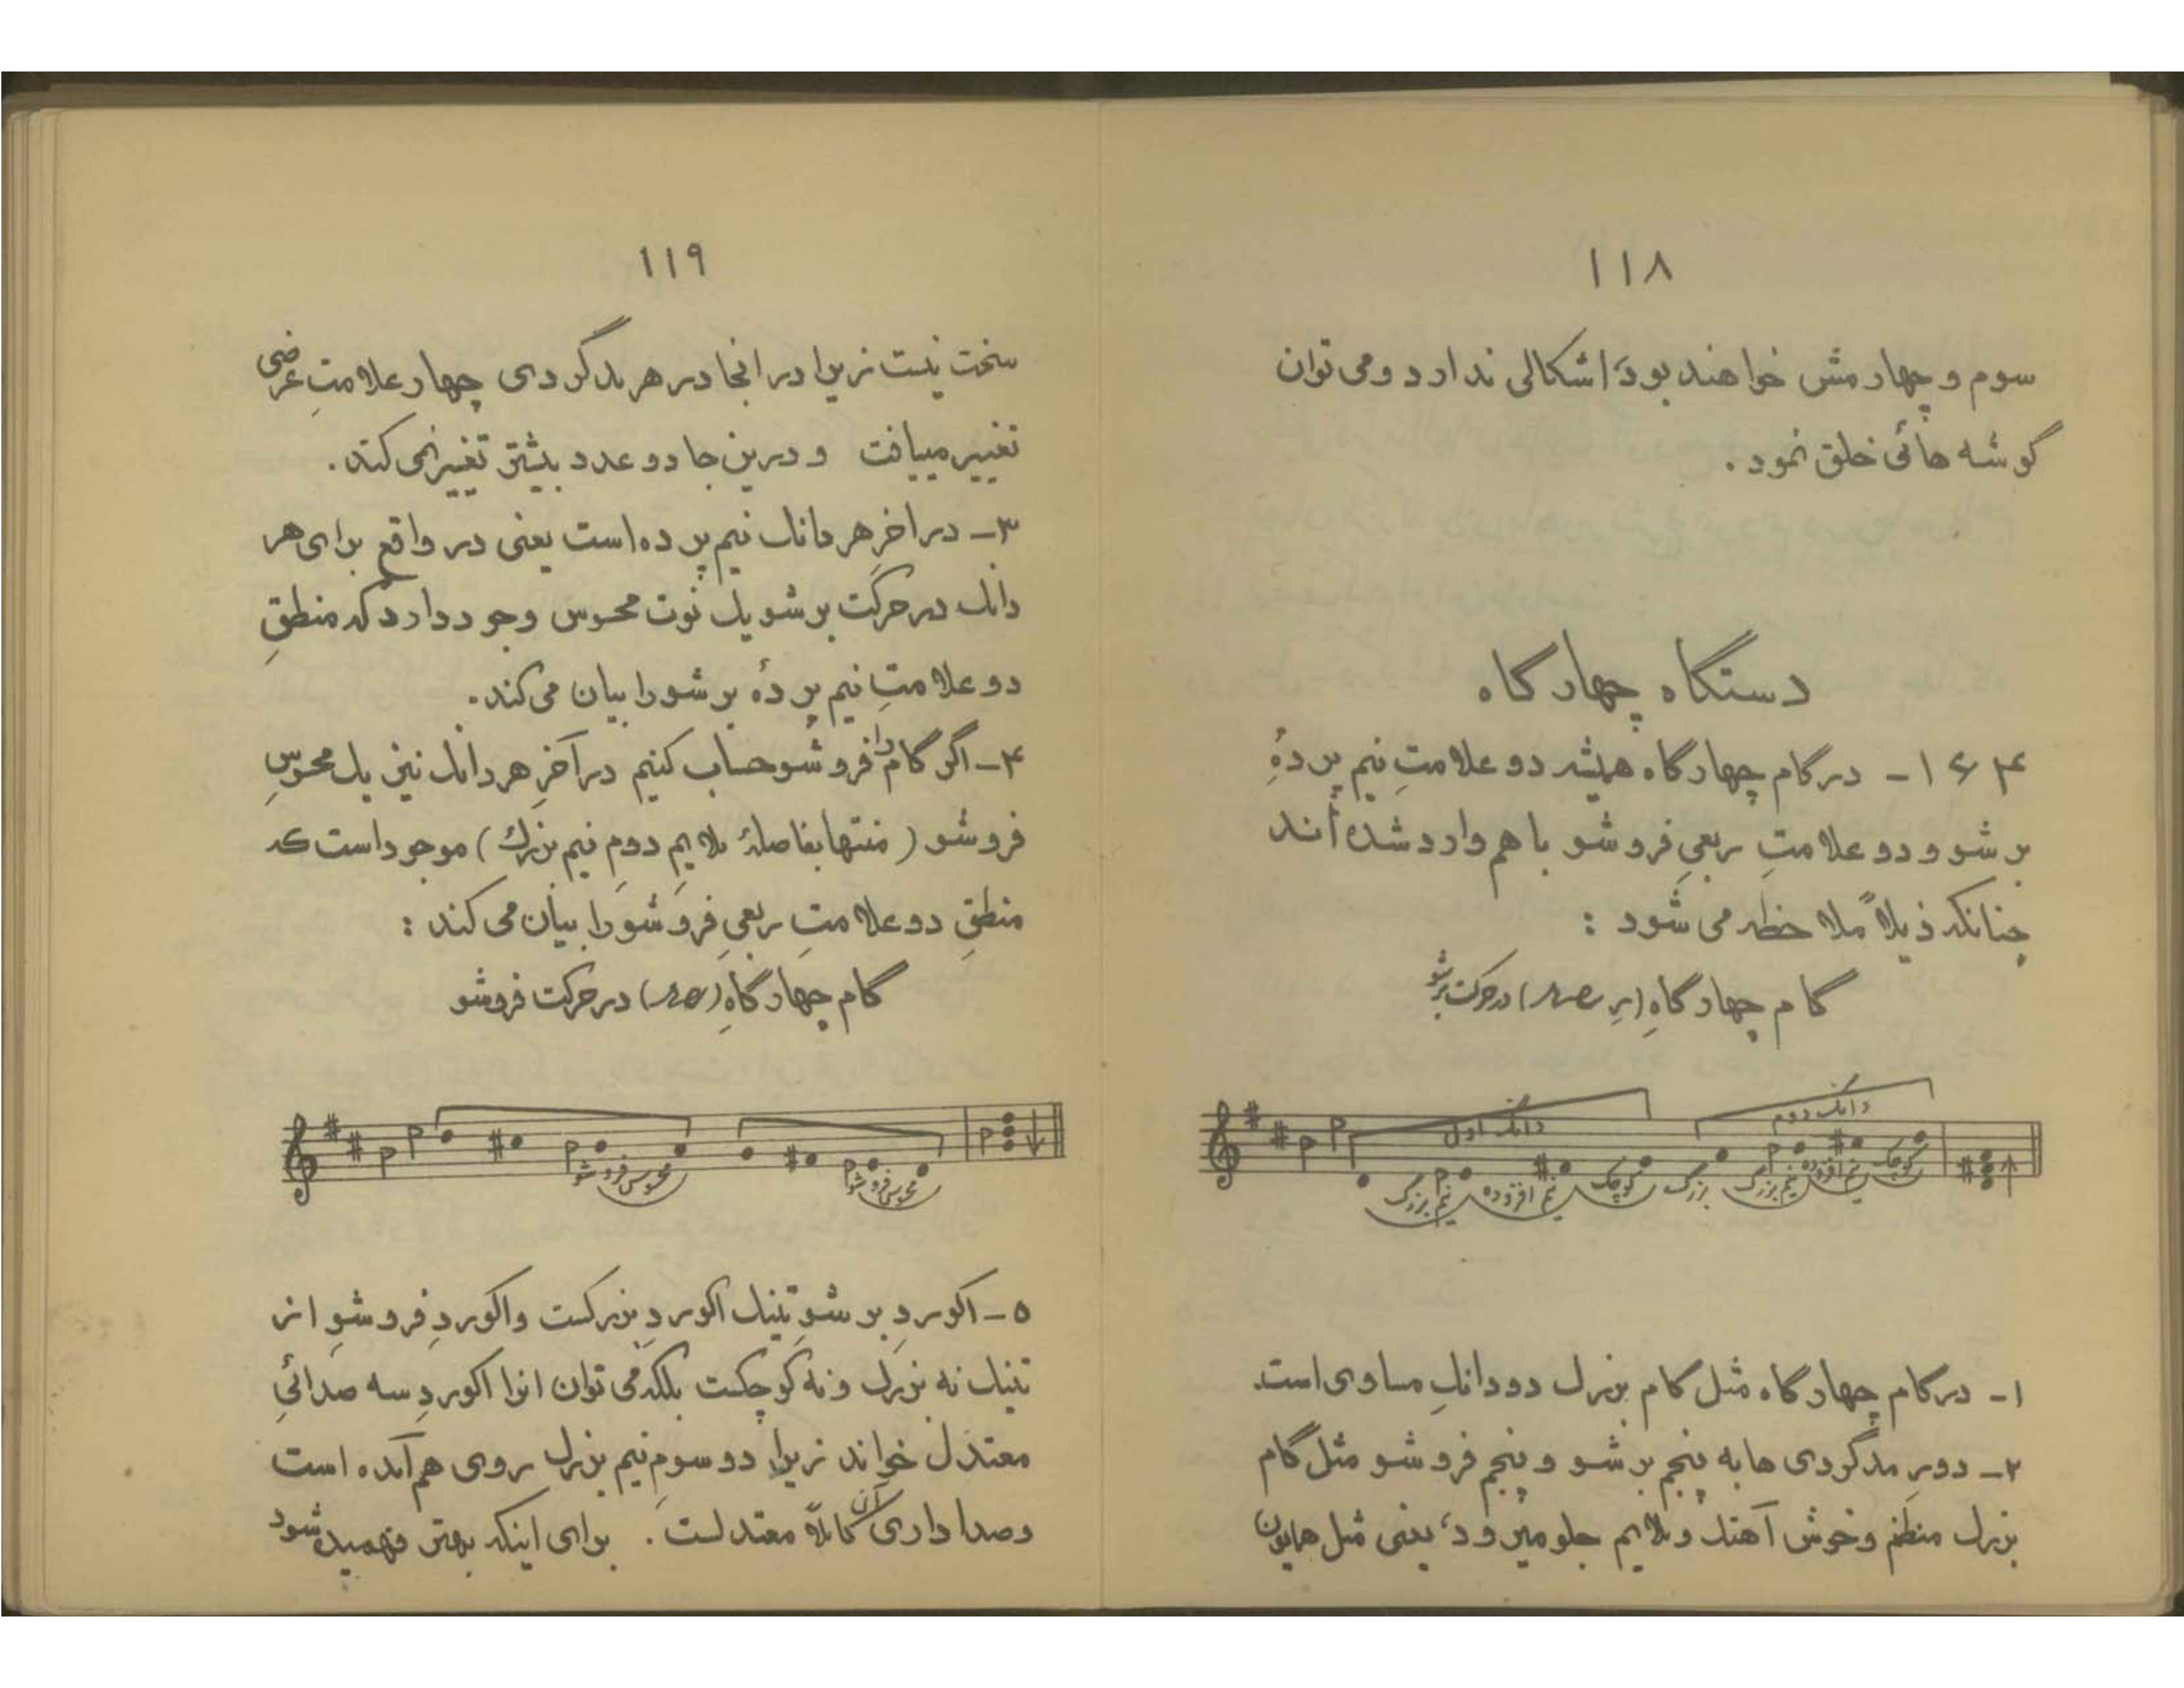 ۱۱۸
سوم و چهارمش خواهند بود اشکالی ندارد و می توان
گوشه هائی خلق نمود .
دستگاه چهارگاه
۱۶۴ - در گام چهارگاه همیشه دو علامتِ نیم پردهٔ
بر شو و دو علامتِ ربعیِ فروشو با هم وارد شده اند
چنانکه ذیلاً ملاحظه می شود :
گام چهارگاهِ (رِ) در حرکت برشو
دانگ اول
دانگ دوم
نیم بزرگ نیم افزوده کوچک بزرگ نیم بزرگ نیم افزوده کوچک
۱- در گام چهارگاه مثل گام بزرگ دو دانگِ مساوی است.
۲- دورِ مدگردی ها به پنجم بر شو و پنجم فروشو مثل گام
بزرگ منظم و خوش آهنگ و ملایم جلو میرود، یعنی مثل همایون
۱۱۹
سخت نیست زیرا در انجا در هر مدگردی چهار علامتِ عرضی
تغییر مییافت و درین جا دو عدد بیشتر تغییر نمی کند .
۳- در اخرِ هر دانگ نیم پرده است یعنی در واقع برای هر
دانگ در حرکت برشو یک نوت محسوس وجود دارد که منطقِ
دو علامتِ نیم پردهٔ بر شو را بیان می کند .
۴- اگر گام را فروشو حساب کنیم در آخرِ هر دانگ نیز یک محسوسِ
فروشو ( منتها بفاصلهٔ ملایمِ دومِ نیم بزرگ ) موجود است که
منطقِ دو علامتِ ربعیِ فروشو را بیان می کند :
گام چهارگاهِ ( ) در حرکت فروشو
محسوس فروشو محسوس فروشو
۵- اکوردِ بر شوِ تنیک اکوردِ بزرگست و اکوردِ فروشوِ از
تنیک نه بزرگ و نه کوچکست بلکه می توان انرا اکوردِ سه صدائیِ
معتدل خواند زیرا دو سومِ نیم بزرگ روی هم آمده است
و صدا داری آن کاملاً معتدلست . برای اینکه بهتر فهمیده شود